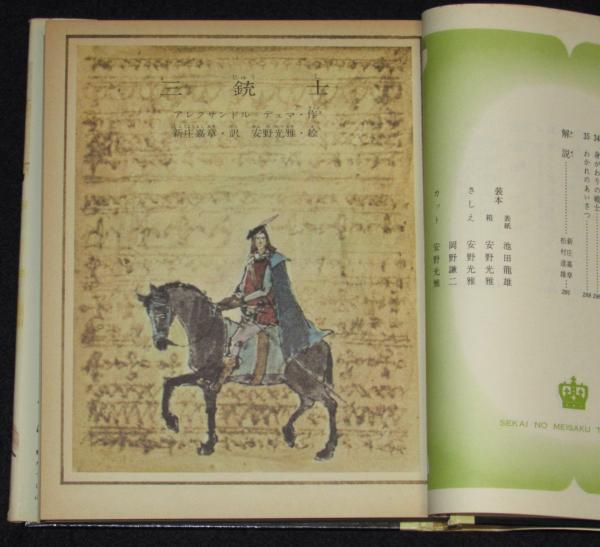 三銃士
じゅう し
アレクサンドル デュマ・作
新庄嘉章・訳 安野光雅・絵
34 身がわりの戦士
35 わかれのあいさつ
解説
新庄嘉章
松村達雄
装本
表紙 池田龍雄
箱 安野光雅
さしえ 安野光雅
岡野謙二
カット 安野光雅
SEKAI NO MEISAKU